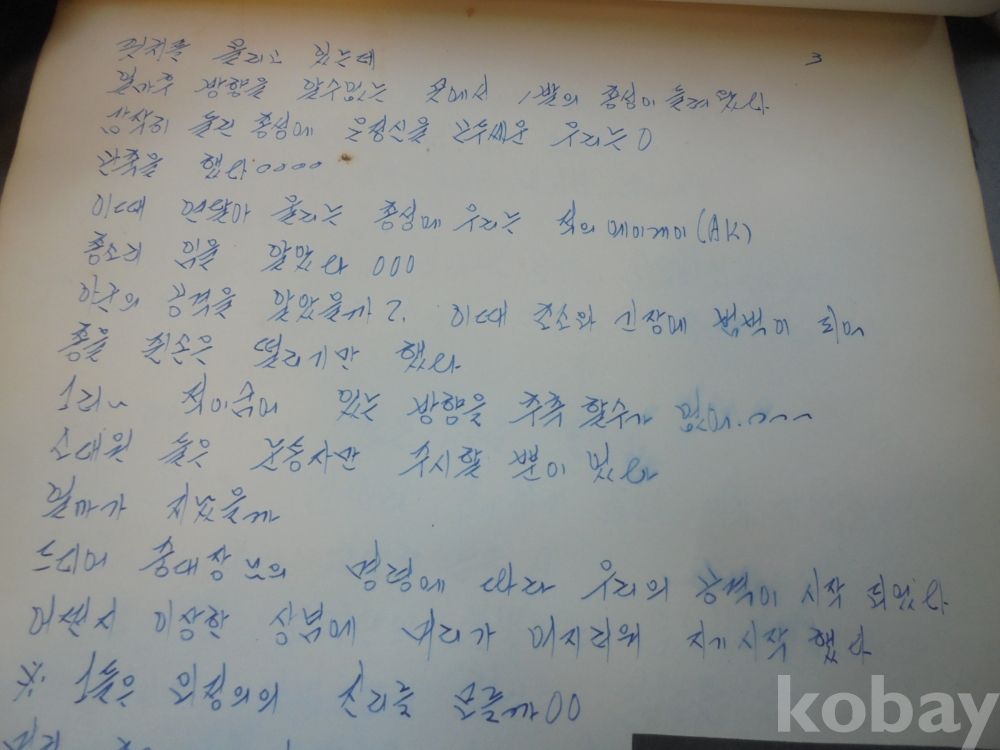 3
핏치를 올리고 있는데
얼마후 방향을 알수없는 곳에서 1발의 총성이 들려왔다
갑작히 들린 총성에 온정신을 곤두세운 우리는 0
단축을 했다.0000
이때 연달아 울리는 총성에 우리는 적의 에이케이(AK)
총소리 임을 알았다 000
아군의 공격을 알았을까?. 이때 초소와 긴장에 범벅이 되어
총을 쥔손은 떨리기만 했다
그러나~ 적이숨어 있는 방향을 추측 할수가 없어.~~~
소대원 들은 눈동자만 주시할 뿐이 었다
얼마가 지났을까
드디어 중대장님의 명령에 따라 우리의 공격이 시작 되었다
어쩐지 이상한 상념에 머리가 어지러워 지기시작 했다
※ 그들은 의 진리를 모를까00
kobay